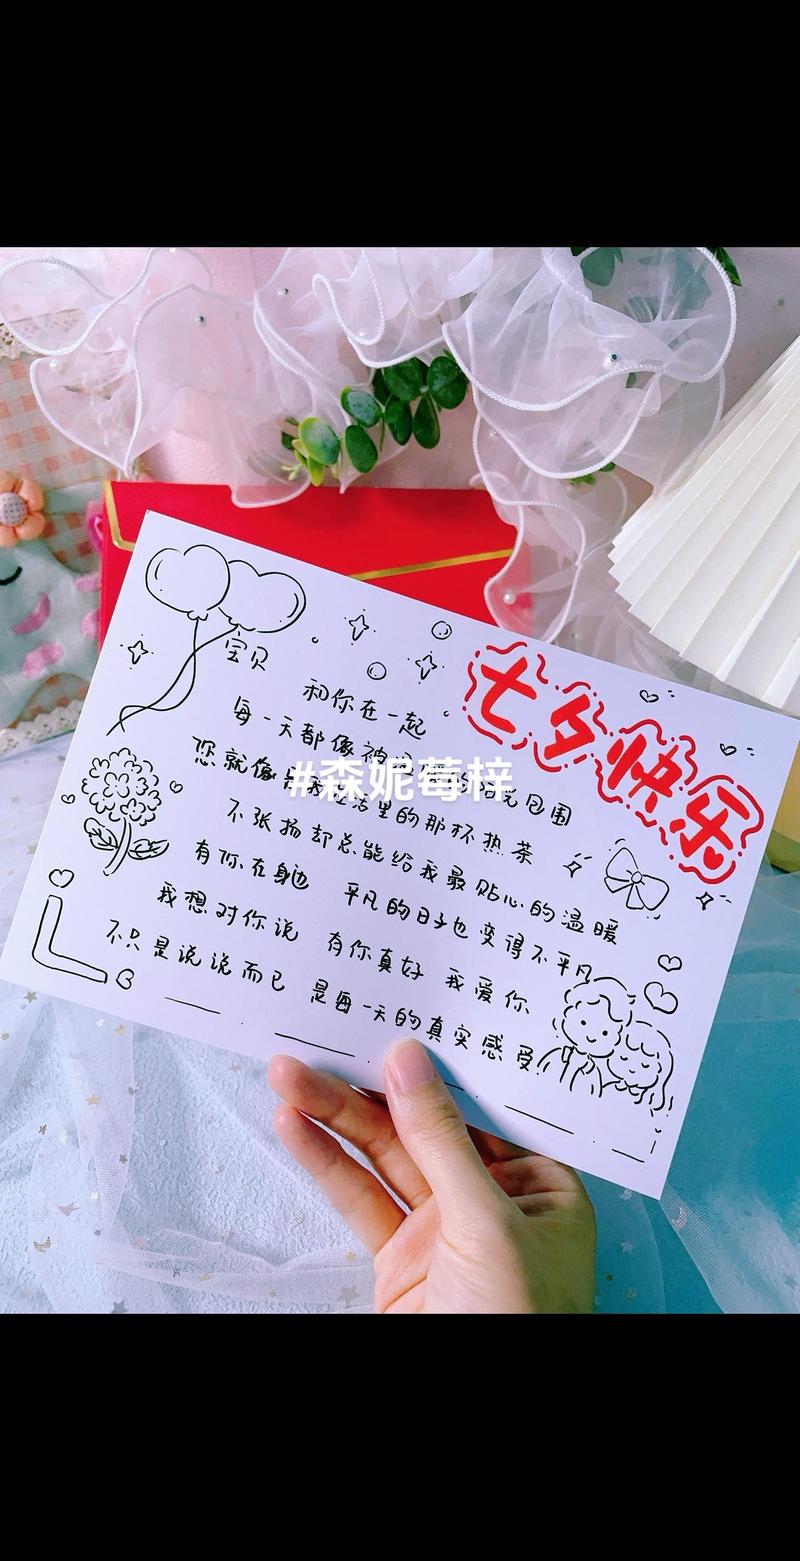 七夕快乐
宝贝
和你在一起
每一天都像被 的 光包围
您就像是我生活里的那杯热茶
不张扬却总能给我最贴心的温暖
有你在身边 平凡的日子也变得不平凡
我想对你说 有你真好 我爱你
不只是说说而已 是每一天的真实感受
#森妮莓梓